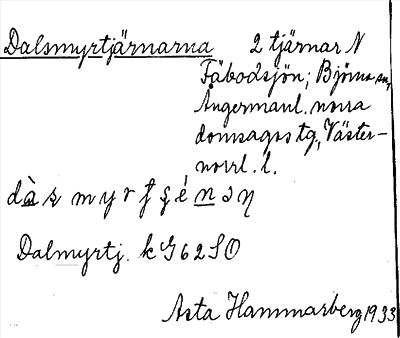 Dalsmyrtjärnarna 2 tjärnar N
Fäbodsjön, Björna sn,
Ångermanl. norra
domsagas tg., Väster-
norrl. l.
Dalmyrtj. k G62SO
Asta Hammarberg 1933